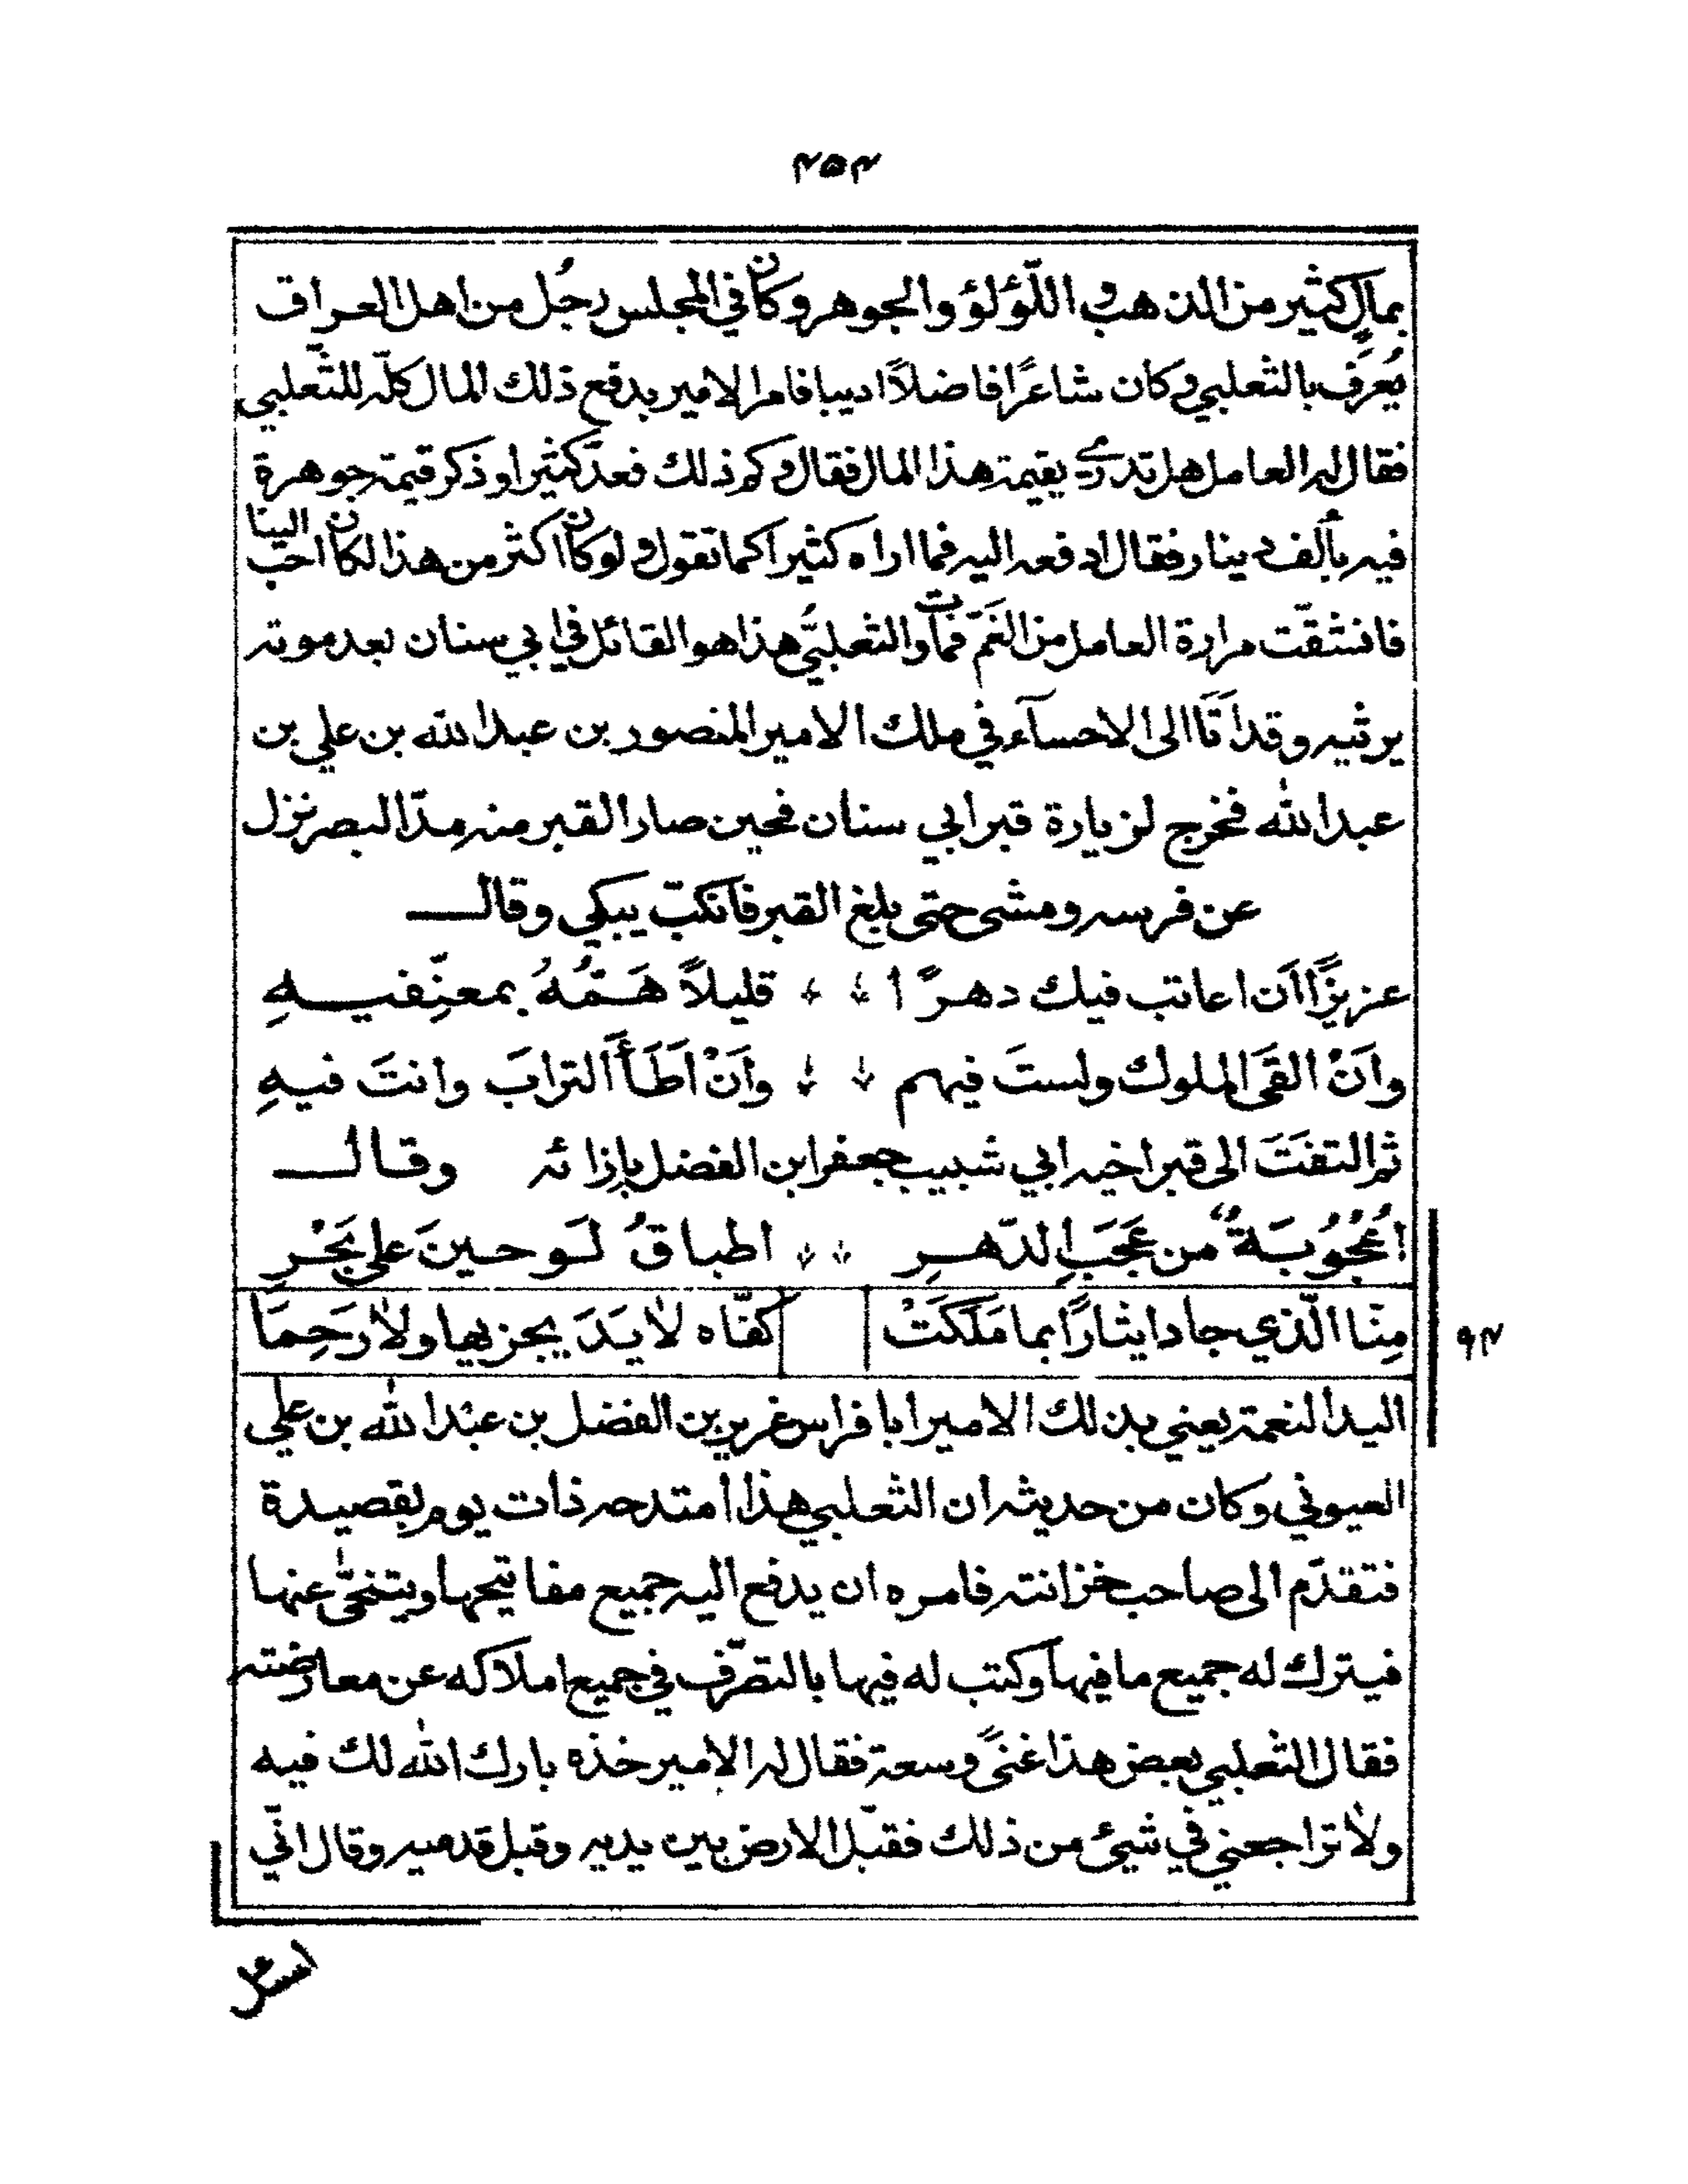 ٤٥٤
بمالٍ كثير من الذهب و اللّؤلؤ والجوهر وكان في المجلس رجُل من اهل العراق
يُعرَف بالثعلبي وكان شاعرًا فاضلاً اديبا فامر الامير بدفع ذلك المال كلّه للثّعلبي
فقال له العامل هل تدري بقيمة هذا المال فقال وكم ذلك فعدّ كثيرا وذكر قيمة جوهرة
فيه بألف دينار فقال ادفعه اليه فما اراه كثيرا كما تقول ولو كان اكثر من هذا لكان احبّ الينا
فانشقّت مرارة العامل من الغَمّ فمات والثعلبيُّ هذا هو القائل في ابي سنان بعد موته
يرثيه وقد اَتَا الى الاحسآء في ملك الامير المنصور بن عبد الله بن علي بن
عبد الله فخرج لزيارة قبر ابي سنان فحين صار القبر منه مدّ البصر نزل
عن فرسه ومشى حتى بلغ القبر فانكبّ يبكي وقال
عزيزًا اَن اعاتب فيك دهرًا قليلاً هَمّهُ بمعنّفيهِ
واَنْ القَى الملوك ولستَ فيهم واَنْ اَطَأَ الترابَ وانتَ فيهِ
ثم التفتَ الى قبر اخيه ابي شبيب جعفر ابن الفضل بإزائه وقال
اُعْجُوُبَةٌ من عَجَبِ الدّهرِ اطباقُ لَوحينَ على بَحْرِ
مِنّا الّذي جاد ايثارًا بما مَلَكَتْ كفّاه لا يَدَ يجزيها ولا رَحِمَا
٩٤
اليد النعمة يعني بذلك الامير ابا فراس غرير بن الفضل بن عبد الله بن علي
العيوني وكان من حديثه ان الثعلبي هذا امتدحه ذات يوم بقصيدة
فتقدّم الى صاحب خزانته فامره ان يدفع اليه جميع مفاتيحها ويتنحّى عنها
فيترك له جميع ما فيها وكتب له فيها بالتصّرف في جميع املاكه عن معارضته
فقال الثعلبي بعض هذا غنىً وسعة فقال له الامير خذه بارك الله لك فيه
ولا تراجعني في شيئ من ذلك فقبّل الارض بين يديه وقبل قدميه وقال انّي